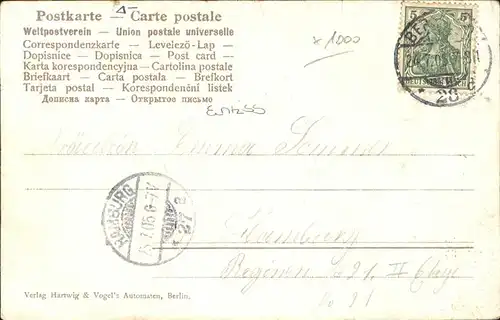 Postkarte — Carte postale
Weltpostverein — Union postale universelle
Correspondenzkarte — Levelező-Lap —
Dopisnice — Dopisnica — Post card —
Karta korespondencyjna — Cartolina postale
Briefkaart — Carta postala — Brefkort
Tarjeta postal — Korespondenční lístek
Дописна карта — Открытое письмо
x 1000
5 5
28
Emma
HAMBURG
6-7V
27
Hamburg
21 II Etage
21
Verlag Hartwig & Vogel's Automaten, Berlin.